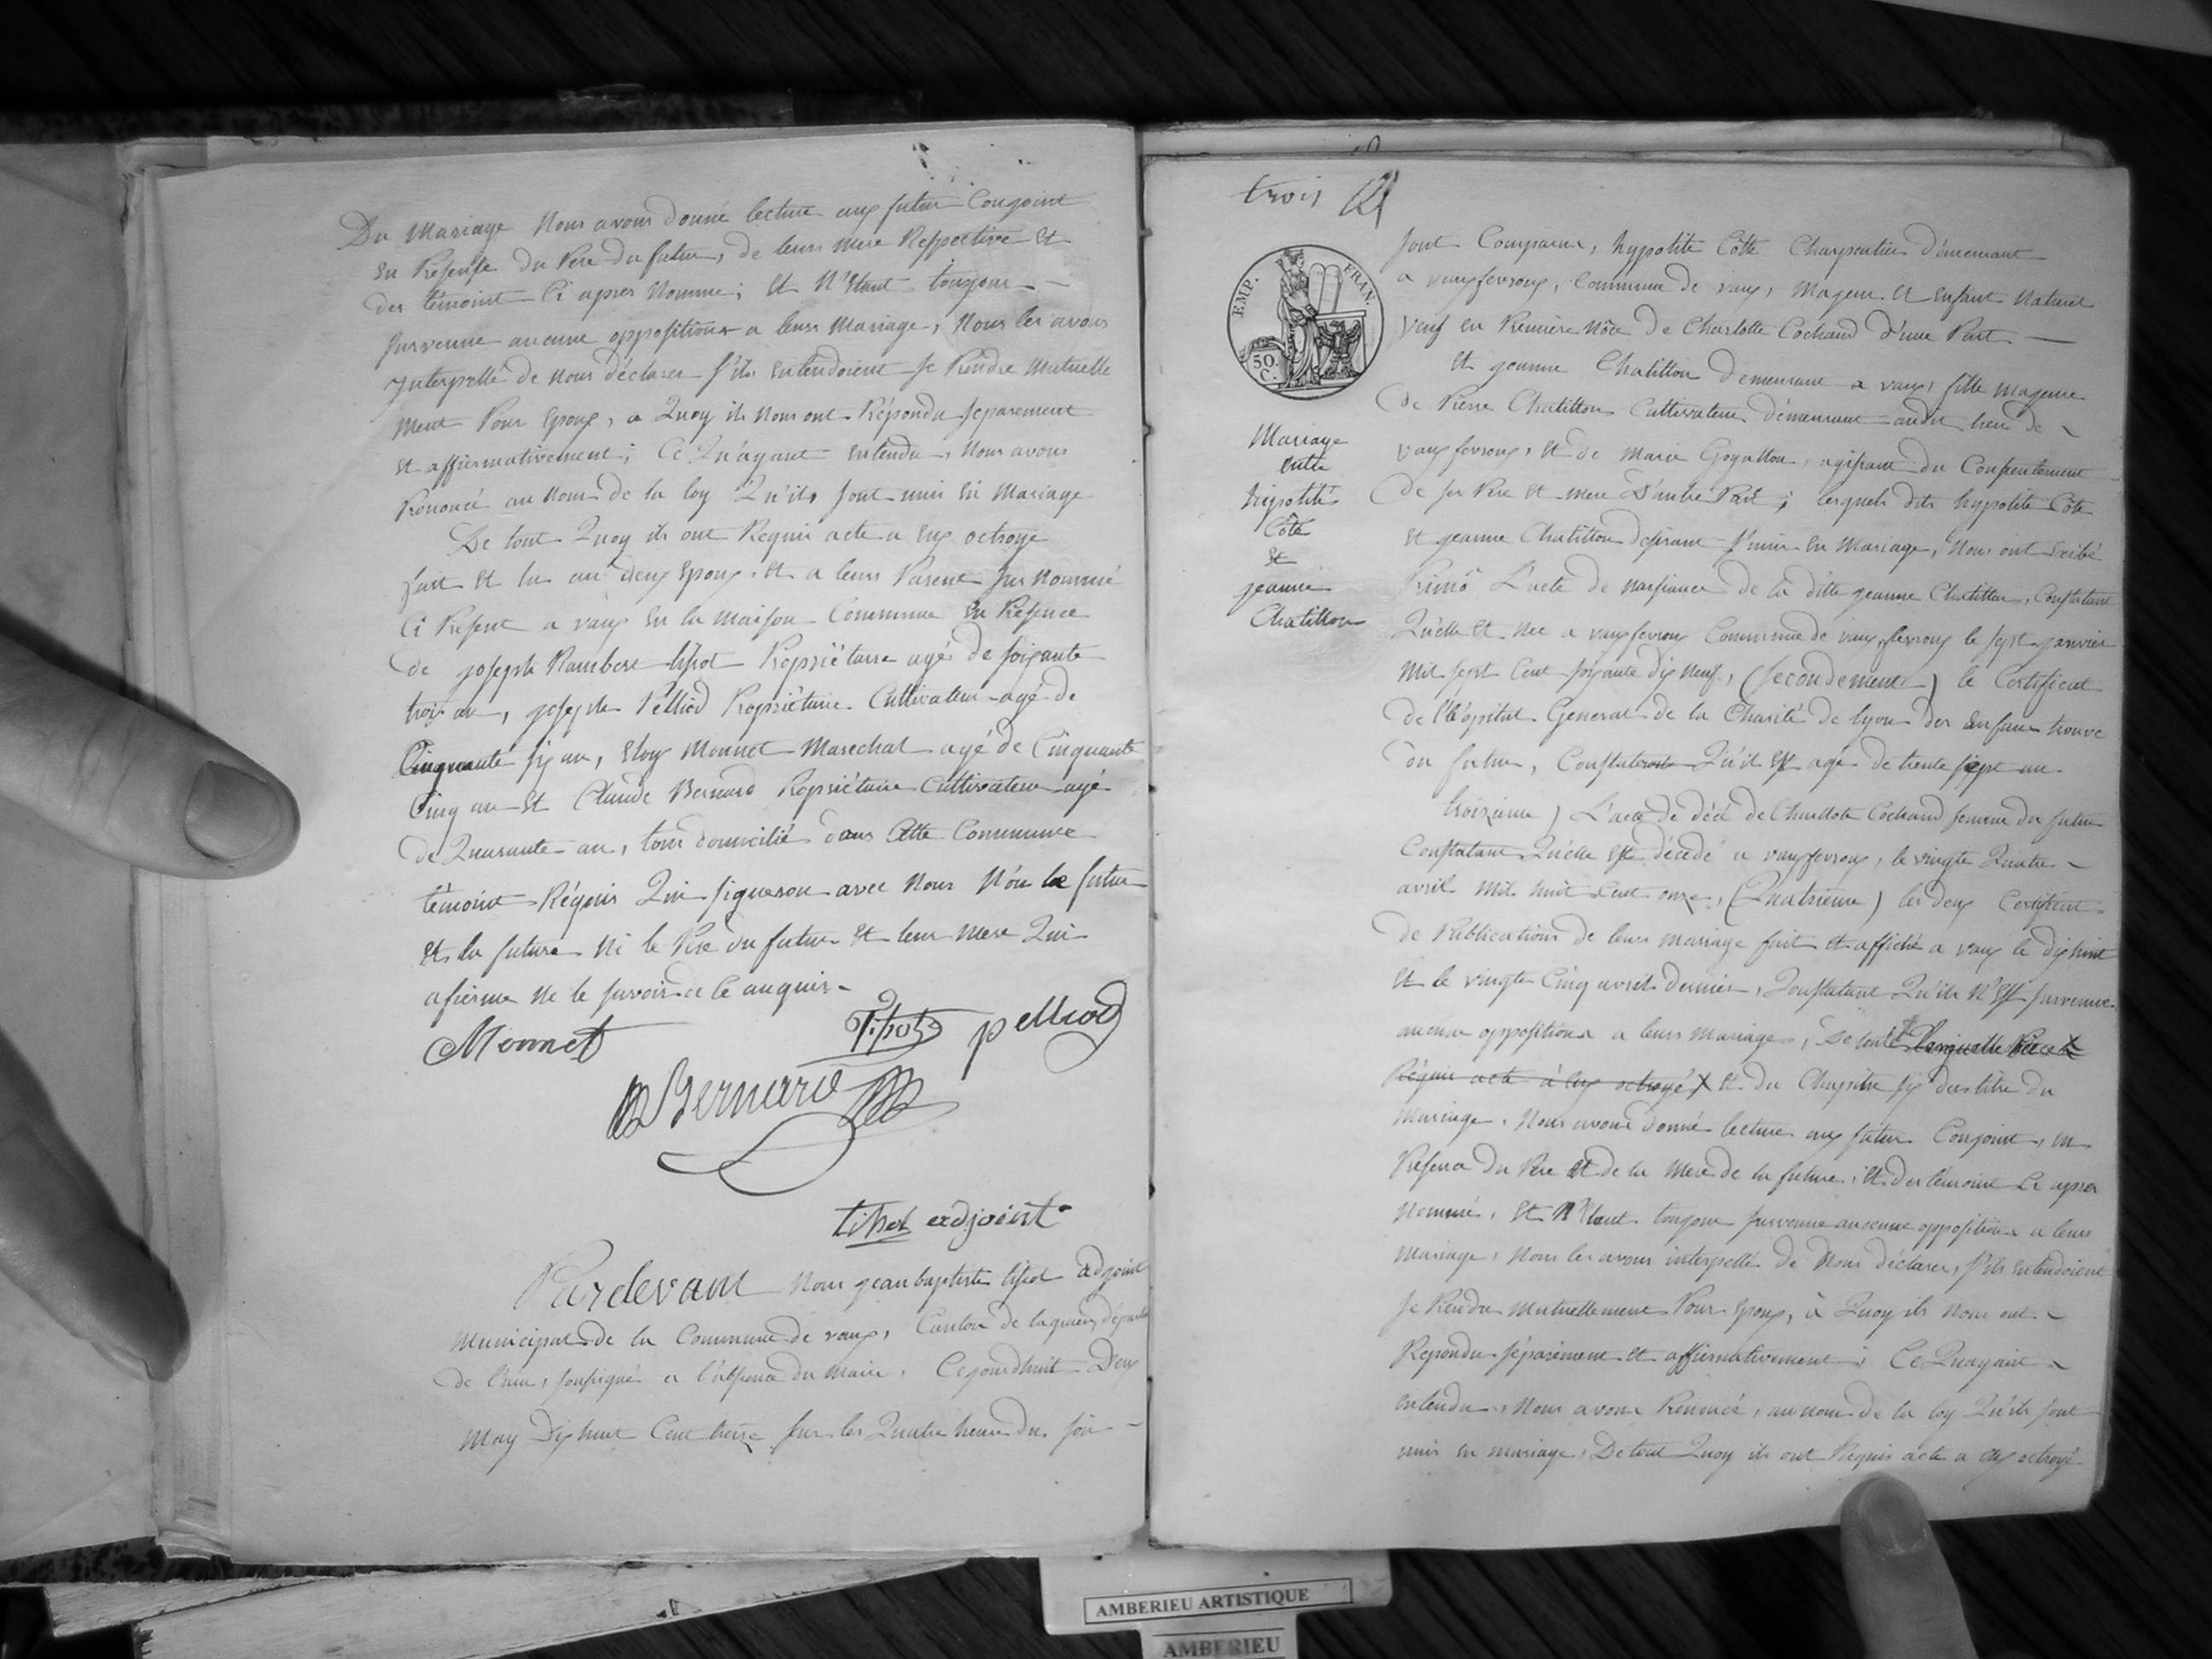 Du Mariage Nous avons donné lecture aux futur Conjoint
En Présense du Pere du futur, de leurs mere Respective Et
des témoint Ci apres Nommé; Et N'Etant toujour
survenue aucune oppositions a leurs Mariage, Nous les avons
Interpellé de nous déclarer s'ils entendoient se Prendre Mutuelle
ment Pour Epoux, a Quoy ils nous ont Répondu separement
et affirmativement; Ce Qu'ayant entendu, Nous avons
Prononcé au Nom de la loy Qu'ils sont unis En Mariage
De tout Quoy ils ont Requis acte a Eux octroyé
fait Et lu au deux Epoux, Et a leurs Parent sus nommé
Ci Présent a vaux En la maison Commune En Présence
de joseph Rambert tissot Propriétaire agé de soixante
trois an, joseph Pelliod Propriétaire Cultivateur agé de
Cinquante six an, Eloy Monnet Marechal agé de Cinquante
Cinq an Et Claude Bernard Propriétaire Cultivateur agé
de Quarante an, tous domicilié dans Cette Commune
témoint Réquis Qui signeron avec Nous Non le futur
Et la future Ni le Pere du futur Et leur Mere Qui
afirme Ne le savoir de Ce anquis
Monnet Tissot pelliod
Bernard
tissot adjoint
Pardevant Nous jean baptiste tissot adjoint
Municipal de la Commune de vaux, Canton de lagnieu, départ
de l'ain, soussigné a l'absence du Maire, Cejourdhuit Deux
May Dix huit Cent treize sur les Quatre heure du soir
trois
EMP. FRAN.
50. C.
Mariage
entre
hypolité
Côte
Et
jeanne
Chatillon
sont Comparus, hypolite Côte Charpentier démeurant
a vauxfevroux, Commune de vaux, Majeur Et Enfant Naturel
Veuf En Première Nôce de Charlotte Cochand d'une Part
Et jeanne Chatillon Demeurant a vaux, fille majeure
de Pierre Chatillon Cultivateur démeurant audit lieu de
vauxfevroux, Et de Marie Goyatton, agissant du Consentement
de ses Pere Et Mere D'autre Part; lesquels dits hypolite Côte
Et jeanne Chatillon desirant s'unir En Mariage, Nous ont Exibé
Primô L'acte de naissance de la ditte jeanne Chatillon, Constatant
Qu'elle Et Née a vauxfevroux Commune de vaux fevroux le sept janvier
Mil sept Cent soixante dix Neuf, (secondement) le Certificat
de l'hôpital General de la Charité de lyon des Enfans trouvé
du futur, Constatant Qu'il Est agé de trente sept an
troizieme) L'acte de décé de Charlote Cochand femme du futur
Constatant Qu'elle Est décédé a vauxfevroux, le vingte Quatre
avril Mil huit Cent onze, (Quatrieme) les deux Certificat
de Publications de leurs Mariage fait Et affiché a vaux le dix huit
Et le vingte Cinq avril dernier, Constatant Qu'ils N'Est survenue
aucune opposition a leurs Mariage, De toute
Réquis acte à Eux octroyé X Et du Chapitre six du titre du
Mariage, Nous avons donné lecture aux futur Conjoint, En
Présence du Pere Et de la Mere de la future, Et des témoint Ci apres
Nommé, Et N'Etant toujour survenue aucune opposition a leurs
Mariage, Nous les avons interpellé de Nous déclarer, s'ils entendoient
se Prendre Mutuellement Pour Epoux, à Quoy ils Nous ont
Répondu séparément Et affirmativement; Ce Quayant
entendu, Nous avons Prononcé, au nom de la loy Qu'ils sont
unis en mariage, De tout Quoy ils ont Réquis acte a Eux octroyé
AMBERIEU ARTISTIQUE
AMBERIEU